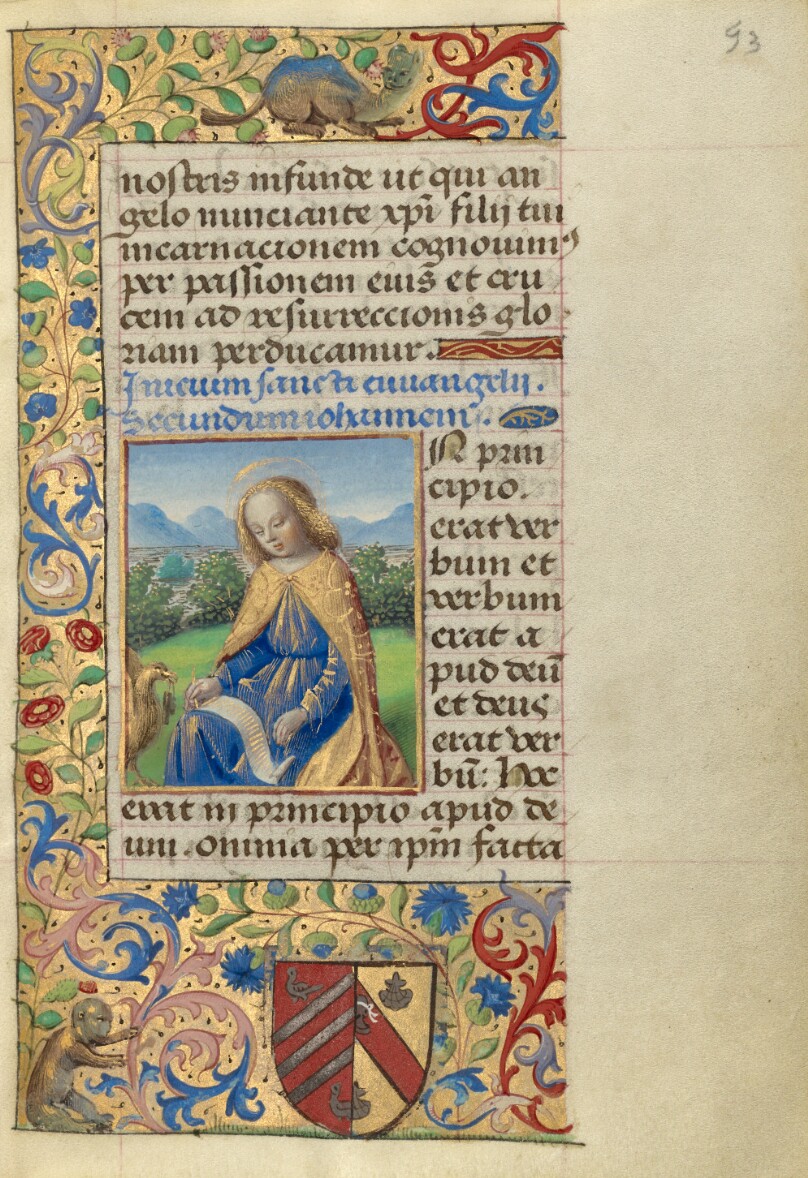 93
nostris infunde ut qui an
gelo nunciante xpi filij tui
incarnacionem cognouim9
per passionem eius et cru
cem ad resurreccionis glo
riam perducamur.
Inicium sancti euuangelij.
Secundum iohannem.
IN prin
cipio.
erat ver
bum et
verbum
erat a
pud deū
et deus
erat ver
bū: Hoc
erat in principio apud de
um. omnia per ipm̄ facta